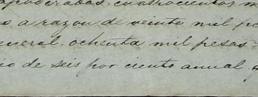 apoderados, cuatrocientos m
s a razon de veinte mil pe
eneral, ochenta mil pesos
io de seis por ciento anual